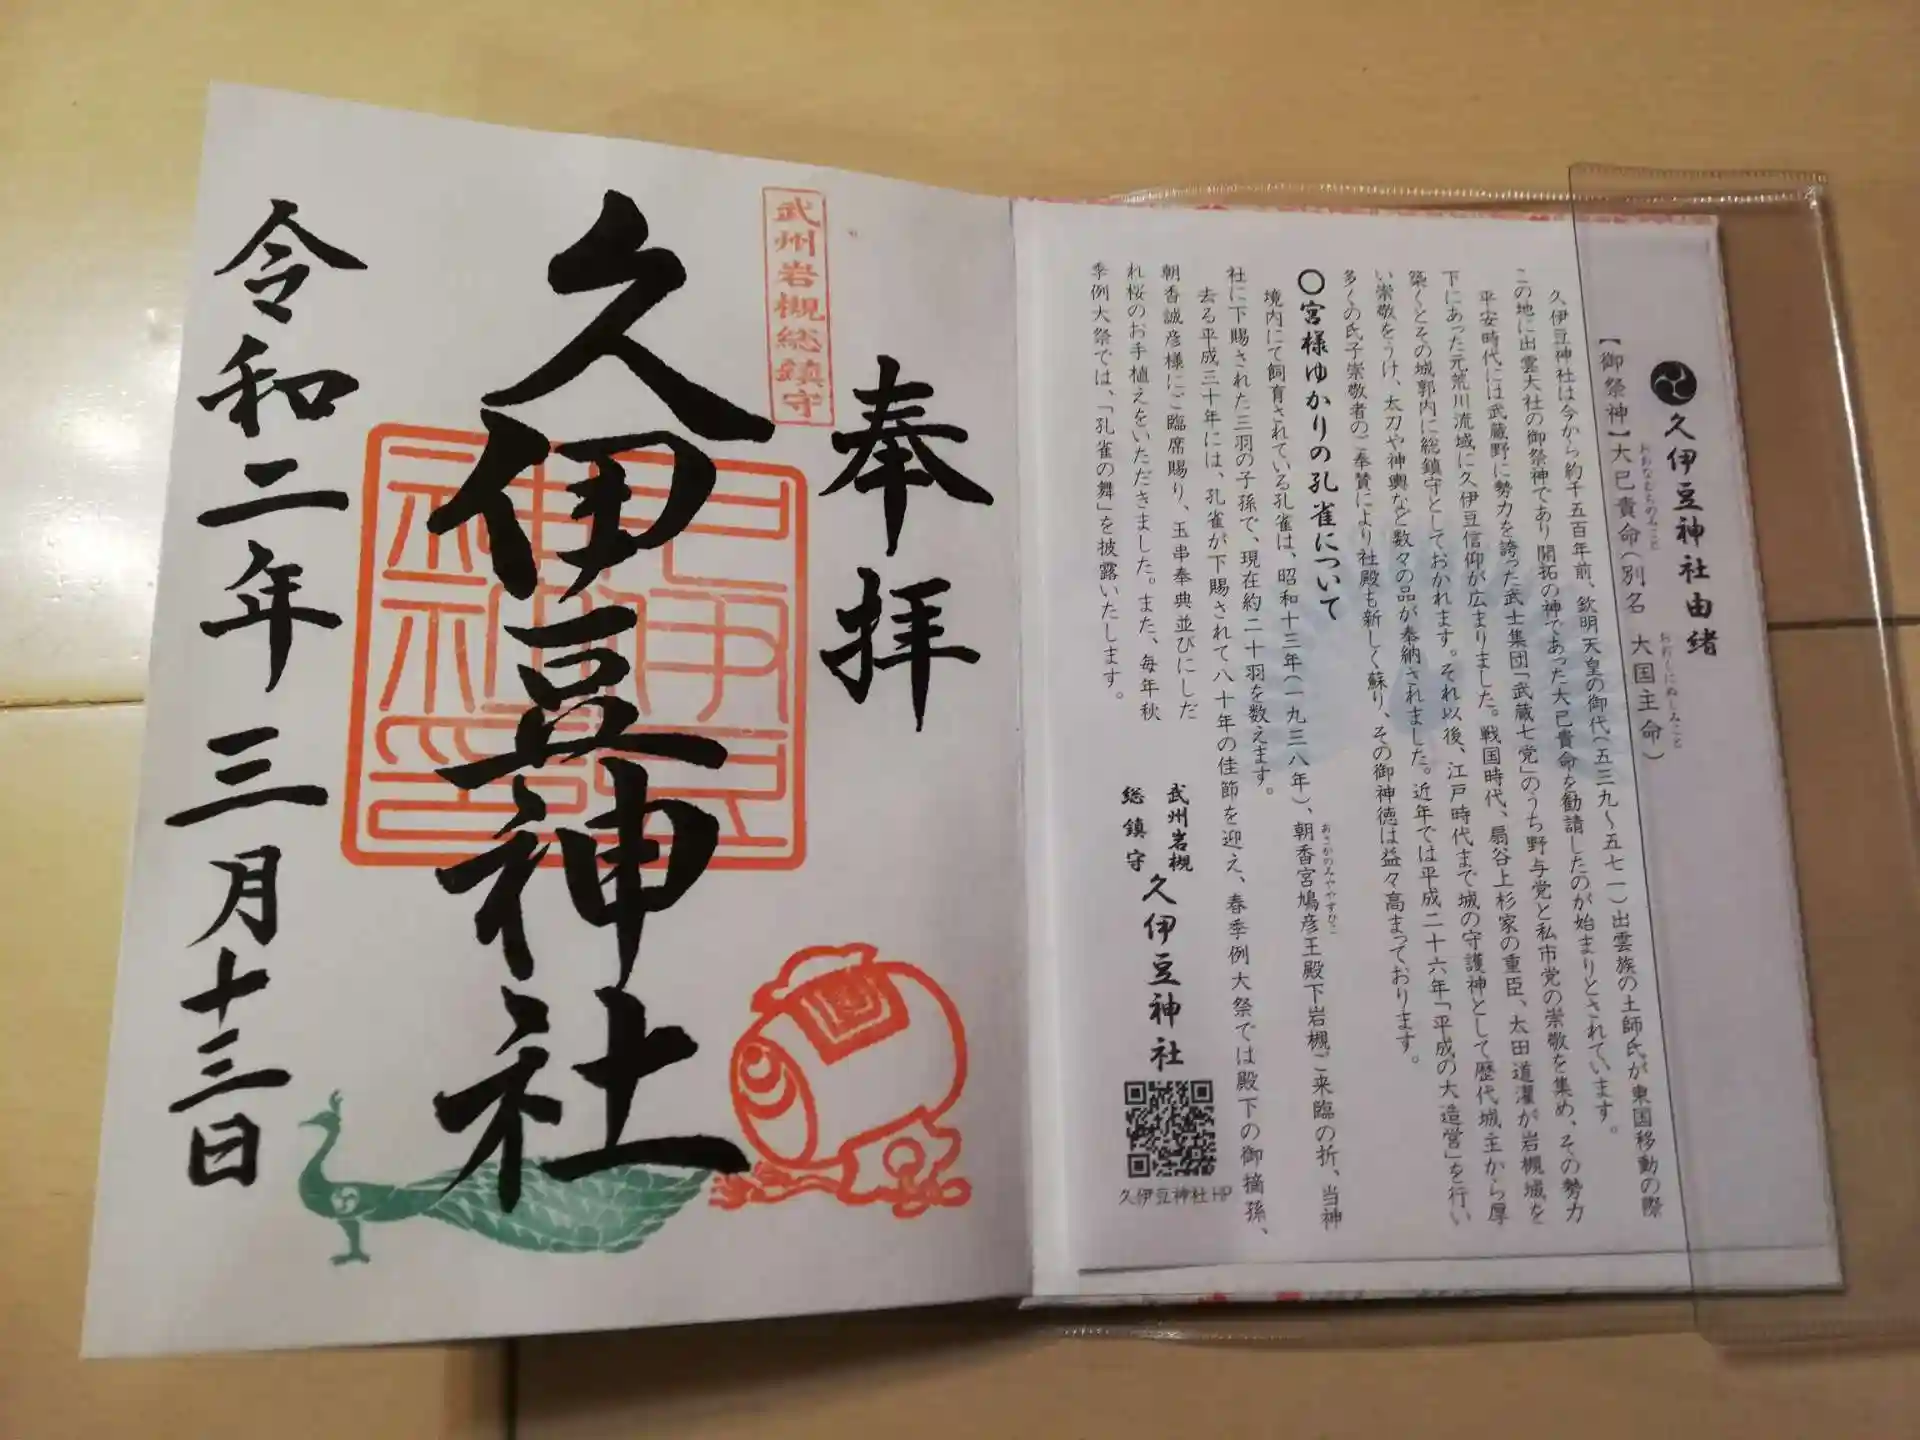 奉拝
武州岩槻総鎮守
久伊豆神社
令和二年三月十三日
久伊豆神社由緒
【御祭神】大己貴命(別名 大国主命)
おおなむちのみこと
おおくにぬしのみこと
久伊豆神社は今から約千五百年前、欽明天皇の御代(五三九〜五七一)出雲族の土師氏が東国移動の際
この地に出雲大社の御祭神であり開拓の神であった大己貴命を勧請したのが始まりとされています。
平安時代には武蔵野に勢力を誇った武士集団「武蔵七党」のうち野与党と私市党の崇敬を集め、その勢力
下にあった元荒川流域に久伊豆信仰が広まりました。戦国時代、扇谷上杉家の重臣、太田道灌が岩槻城を
築くとその城郭内に総鎮守としておかれます。それ以後、江戸時代まで城の守護神として歴代城主から厚
い崇敬をうけ、太刀や神輿など数々の品が奉納されました。近年では平成二十六年「平成の大造営」を行い
多くの氏子崇敬者のご奉賛により社殿も新しく蘇り、その御神徳は益々高まっております。
〇宮様ゆかりの孔雀について
境内にて飼育されている孔雀は、昭和十三年(一九三八年)、朝香宮鳩彦王殿下岩槻ご来臨の折、当神
あさかのみややすひこ
社に下賜された三羽の子孫で、現在約二十羽を数えます。
去る平成三十年には、孔雀が下賜されて八十年の佳節を迎え、春季例大祭では殿下の御摘孫、
朝香誠彦様にご臨席賜り、玉串奉典並びにしだ
れ桜のお手植えをいただきました。また、毎年秋
季例大祭では、「孔雀の舞」を披露いたします。
武州岩槻
総鎮守
久伊豆神社
久伊豆神社HP